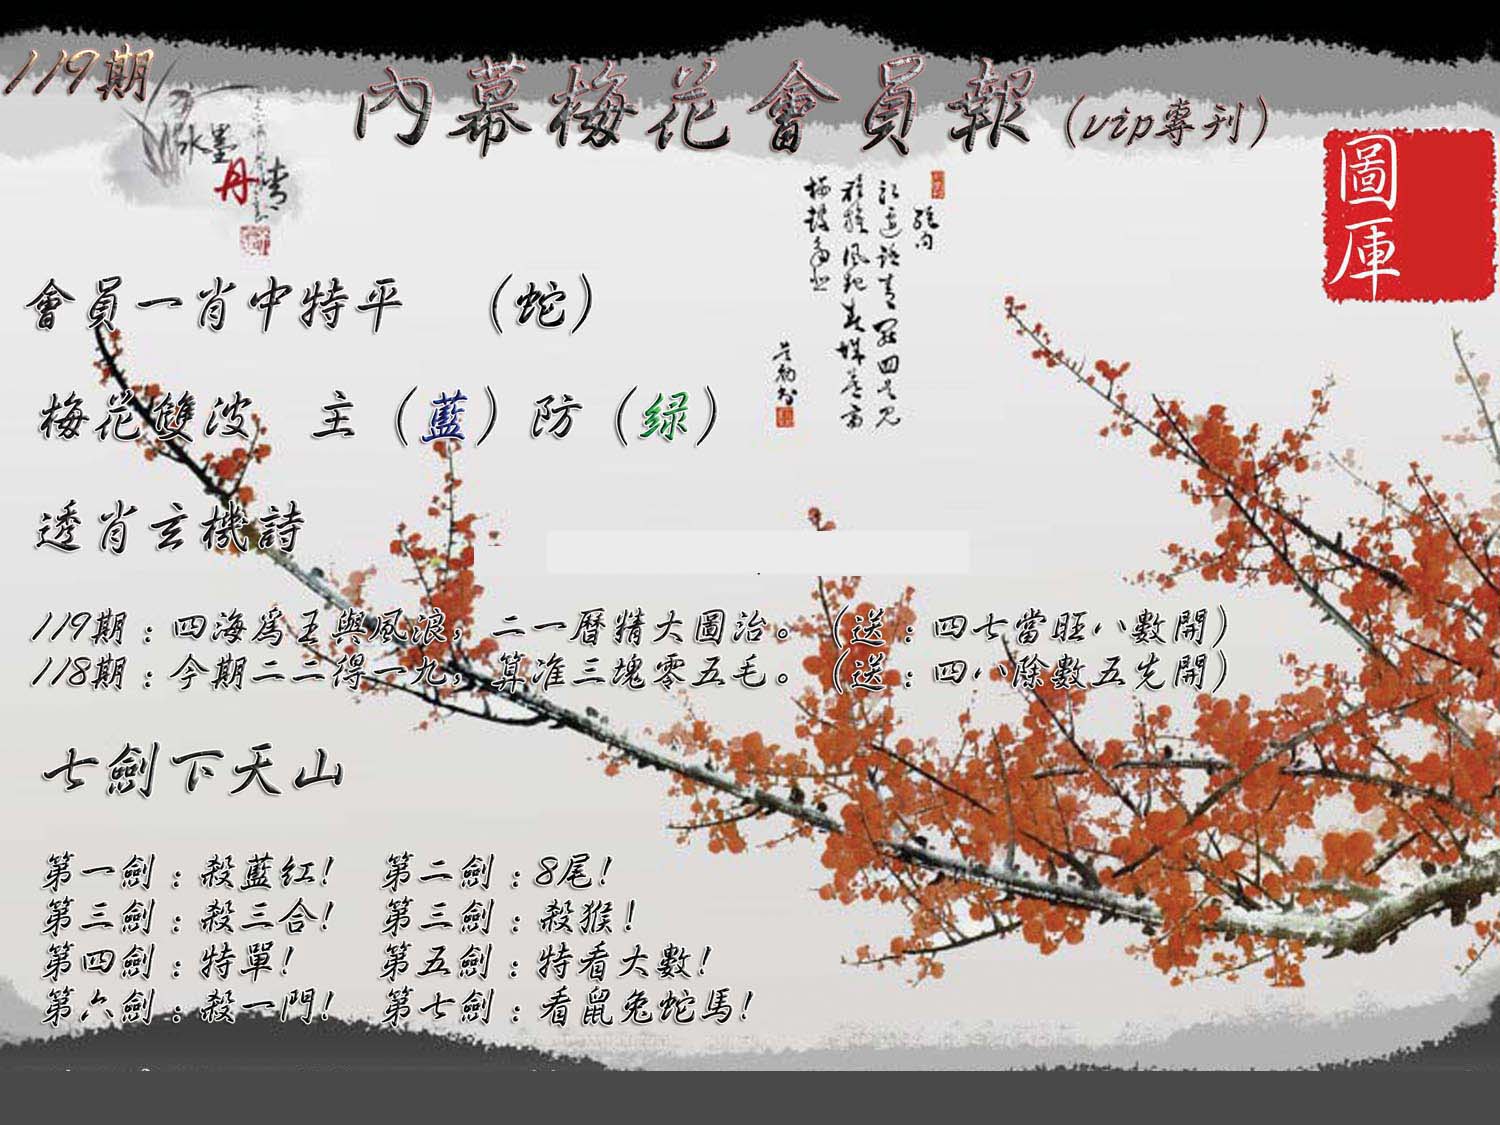 119期
內幕梅花會員報(vip專刊)
水墨
丹青
圖庫
會員一肖中特平 (蛇)
梅花雙波 主(藍)防(绿)
透肖玄機詩
119期:四海爲王與風浪,二一曆精大圖治。(送:四七當旺八數開)
118期:今期二二得一九,算准三塊零五毛。(送:四八除數五先開)
七劍下天山
第一劍:殺藍红! 第二劍:8尾!
第三劍:殺三合! 第三劍:殺猴!
第四劍:特單! 第五劍:特看大數!
第六劍:殺一門! 第七劍:看鼠兔蛇馬!